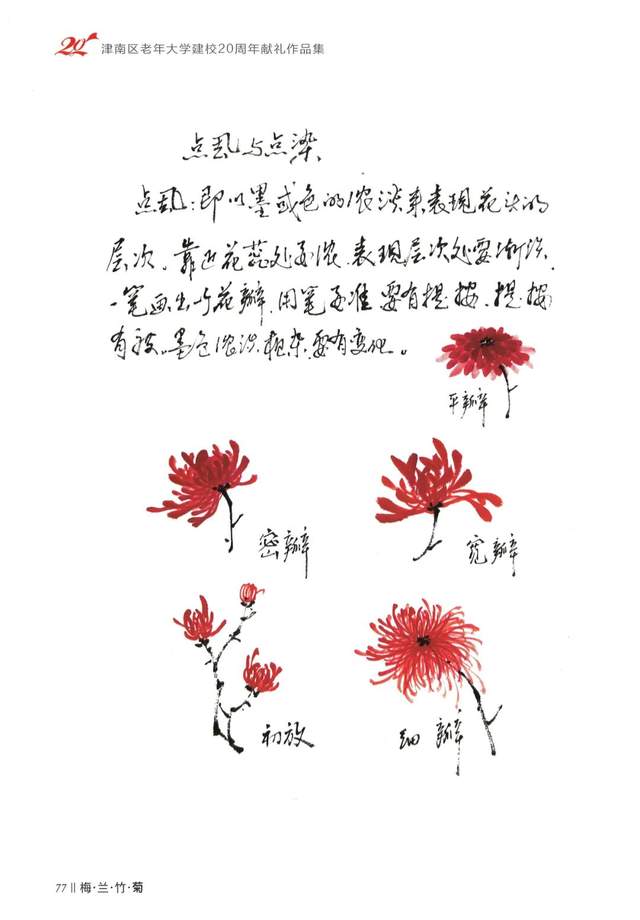 20
津南区老年大学建校20周年献礼作品集
点厾与点染
点厾:即以墨或色的浓淡来表现花头的
层次。靠近花蕊处要浓、表现层次处要渐淡、
一笔画出一个花瓣、用笔要准、要有提按、提按
有致。墨色浓淡、粗杂、要有变化。
平瓣
密瓣
宽瓣
初放
细瓣
77 || 梅·兰·竹·菊